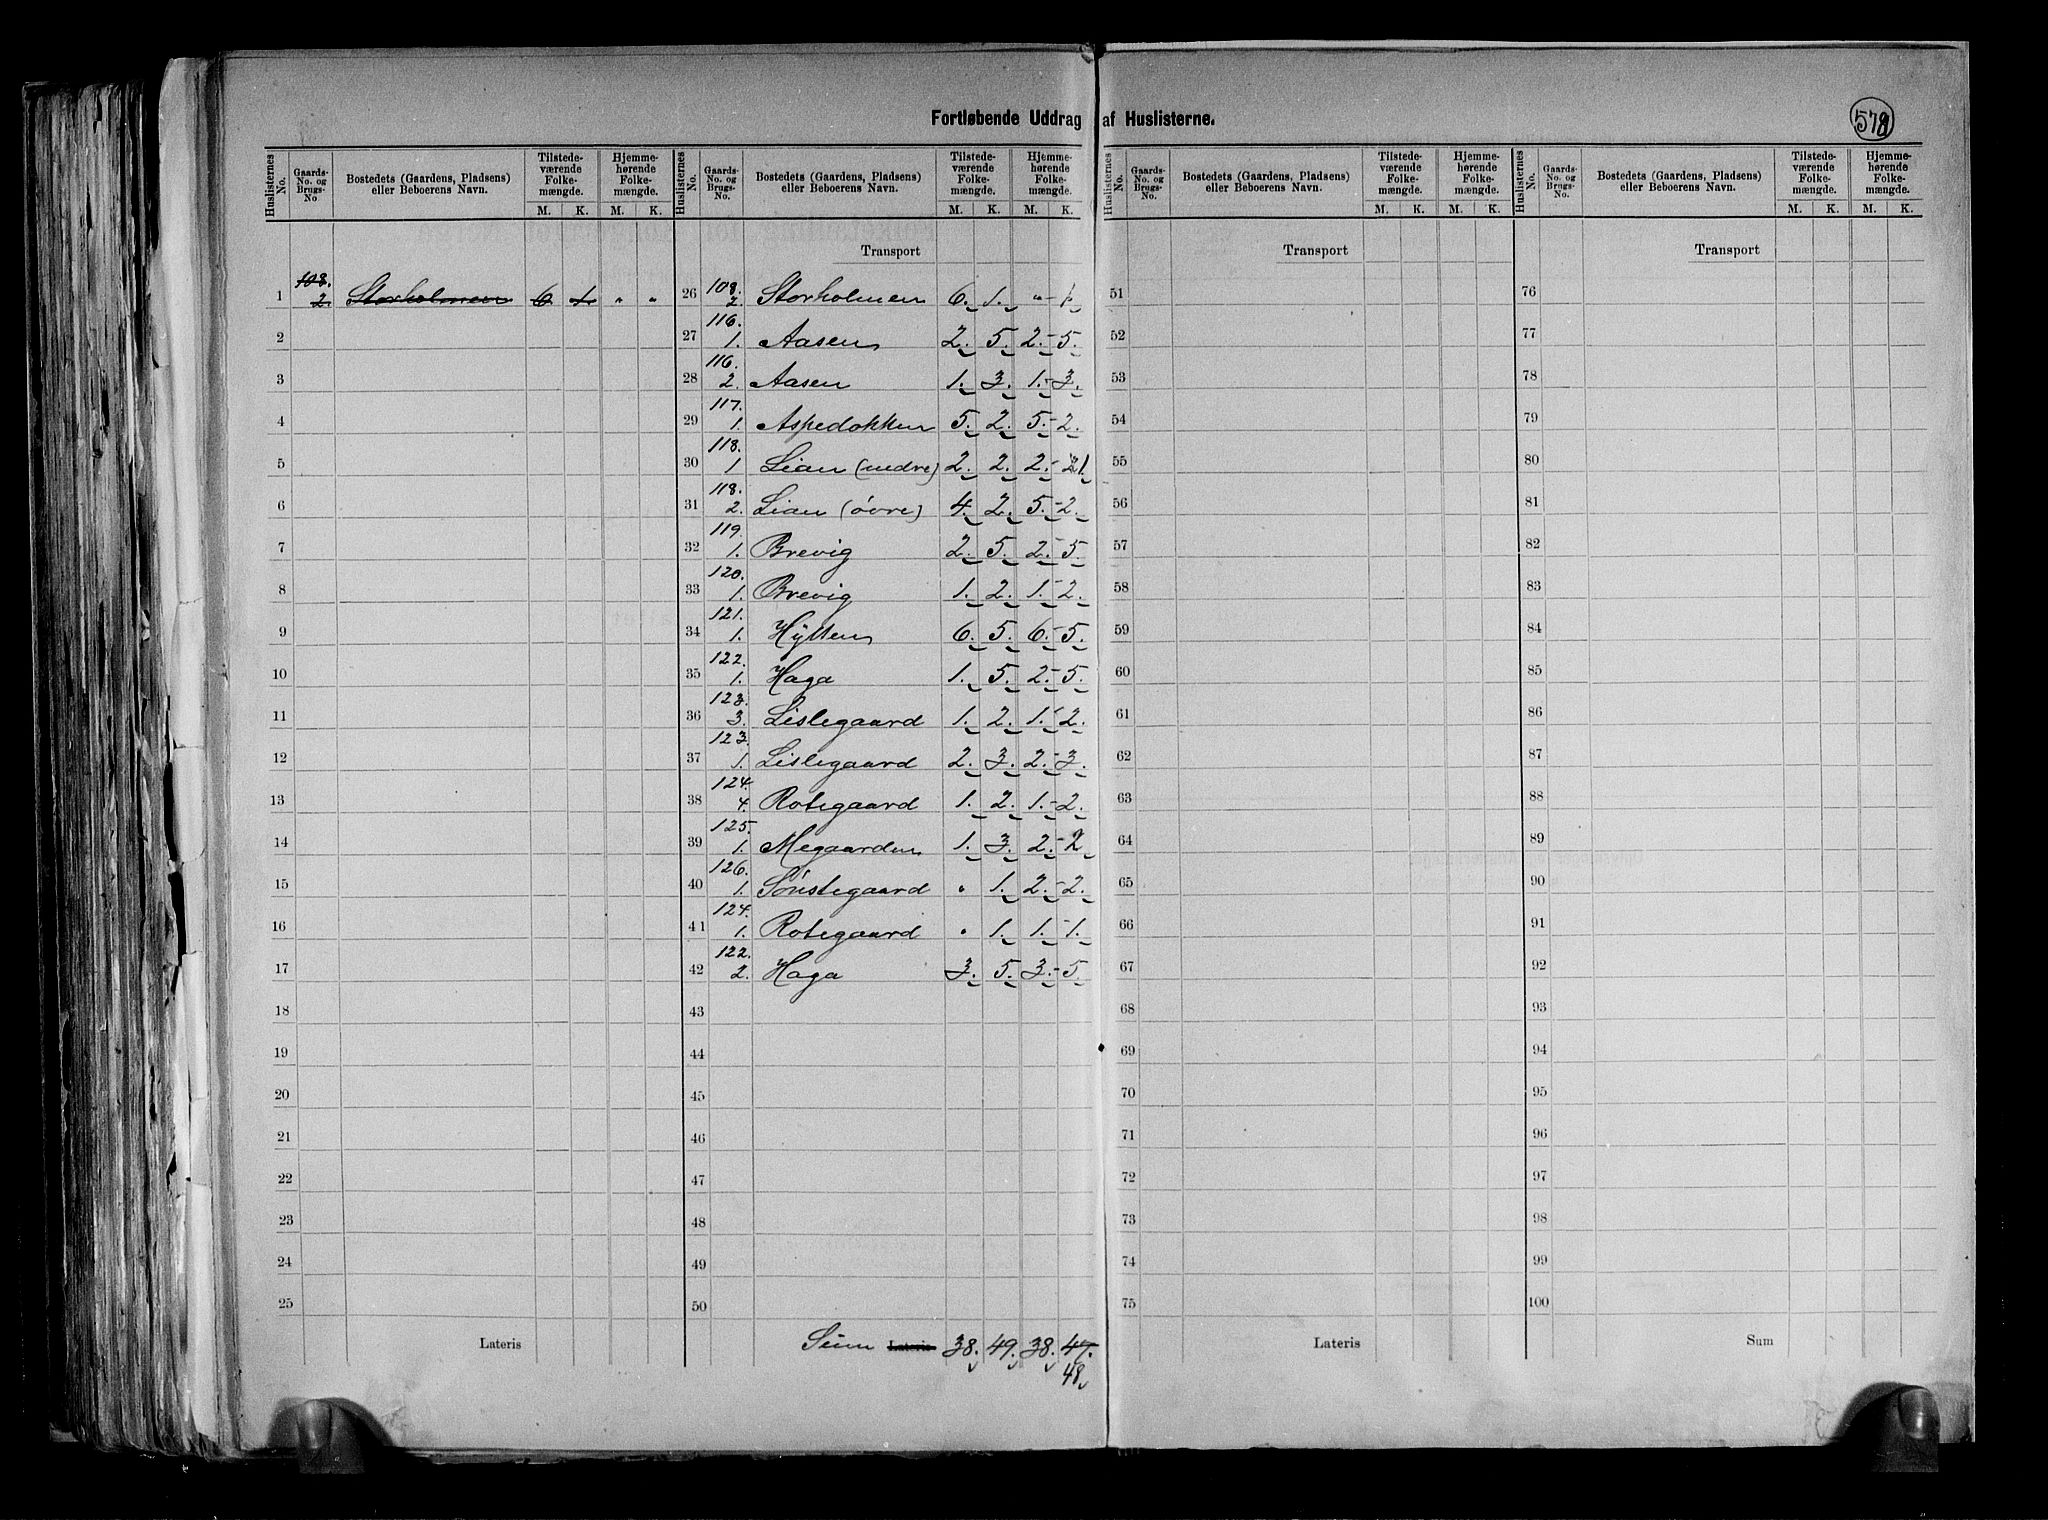 Fortløbende Uddrag af Huslisterne.
578
Huslisternes No. | Gaards-No. og Brugs-No | Bostedets (Gaardens, Pladsens) eller Beboerens Navn. | Tilstedeværende Folkemængde. M. K. | Hjemmehørende Folkemængde. M. K.
Huslisternes No. | Gaards-No. og Brugs-No. | Bostedets (Gaardens, Pladsens) eller Beboerens Navn. | Tilstedeværende Folkemængde. M. K. | Hjemmehørende Folkemængde. M. K.
Huslisternes No. | Gaards-No. og Brugs-No. | Bostedets (Gaardens, Pladsens) eller Beboerens Navn. | Tilstedeværende Folkemængde. M. K. | Hjemmehørende Folkemængde. M. K.
Huslisternes No. | Gaards-No. og Brugs-No. | Bostedets (Gaardens, Pladsens) eller Beboerens Navn. | Tilstedeværende Folkemængde. M. K. | Hjemmehørende Folkemængde. M. K.
1 108. 2. Storholmen 6 1 " "
2
3
4
5
6
7
8
9
10
11
12
13
14
15
16
17
18
19
20
21
22
23
24
25
Lateris
Transport
26 108. 2. Storholmen 6. 1. " 1.
27 116. 1. Aasen 2. 5. 2. 5.
28 116. 2. Aasen 1. 3. 1. 3.
29 117. 1. Aspedokken 5. 2. 5. 2.
30 118. 1 Lian (nedre) 2. 2. 2. 21.
31 118. 2. Lian (övre) 4. 2. 5. 2.
32 119. 1. Brevig 2. 5. 2. 5.
33 120. 1. Brevig 1. 2. 1. 2.
34 121. 1. Hytten 6. 5. 6. 5.
35 122. 1. Haga 1. 5. 2. 5.
36 123. 3. Lislegaard 1. 2. 1. 2.
37 123. 1. Lislegaard 2. 3. 2. 3.
38 124. 4. Rotegaard 1. 2. 1. 2.
39 125. 1. Megaarden 1. 3. 2. 2
40 126. 1. Sønstegaard " 1. 2. 2.
41 124. 1. Rotegaard " 1. 1. 1.
42 122. 2. Haga 3. 5. 3. 5.
43
44
45
46
47
48
49
50
Sum Lateris 38. 49. 38. 47.
48
Transport
51
52
53
54
55
56
57
58
59
60
61
62
63
64
65
66
67
68
69
70
71
72
73
74
75
Lateris
Transport
76
77
78
79
80
81
82
83
84
85
86
87
88
89
90
91
92
93
94
95
96
97
98
99
100
Sum